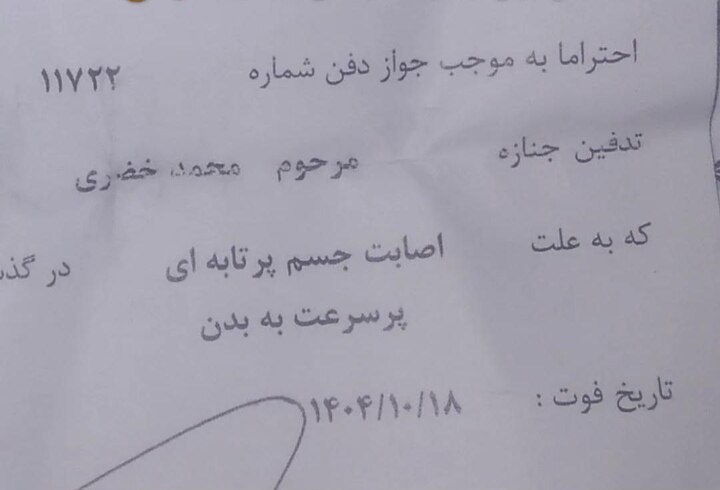 احتراما به موجب جواز دفن شماره ۱۱۷۲۲
تدفین جنازه مرحوم محمد خضری
که به علت اصابت جسم پرتابه ای در گذ
پرسرعت به بدن
تاریخ فوت : ۱۴۰۴/۱۰/۱۸